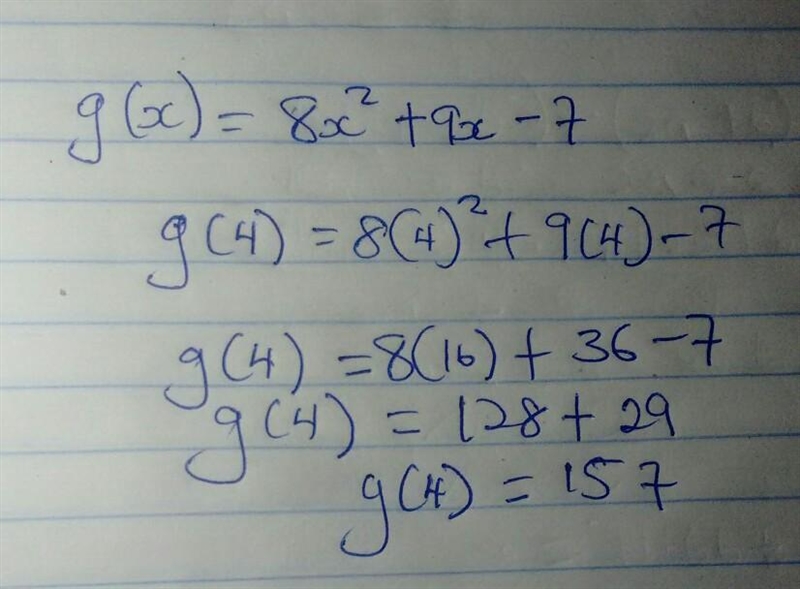 g(x) = 8x² + 9x - 7
g(4) = 8(4)² + 9(4) - 7
g(4) = 8(16) + 36 - 7
g(4) = 128 + 29
g(4) = 157